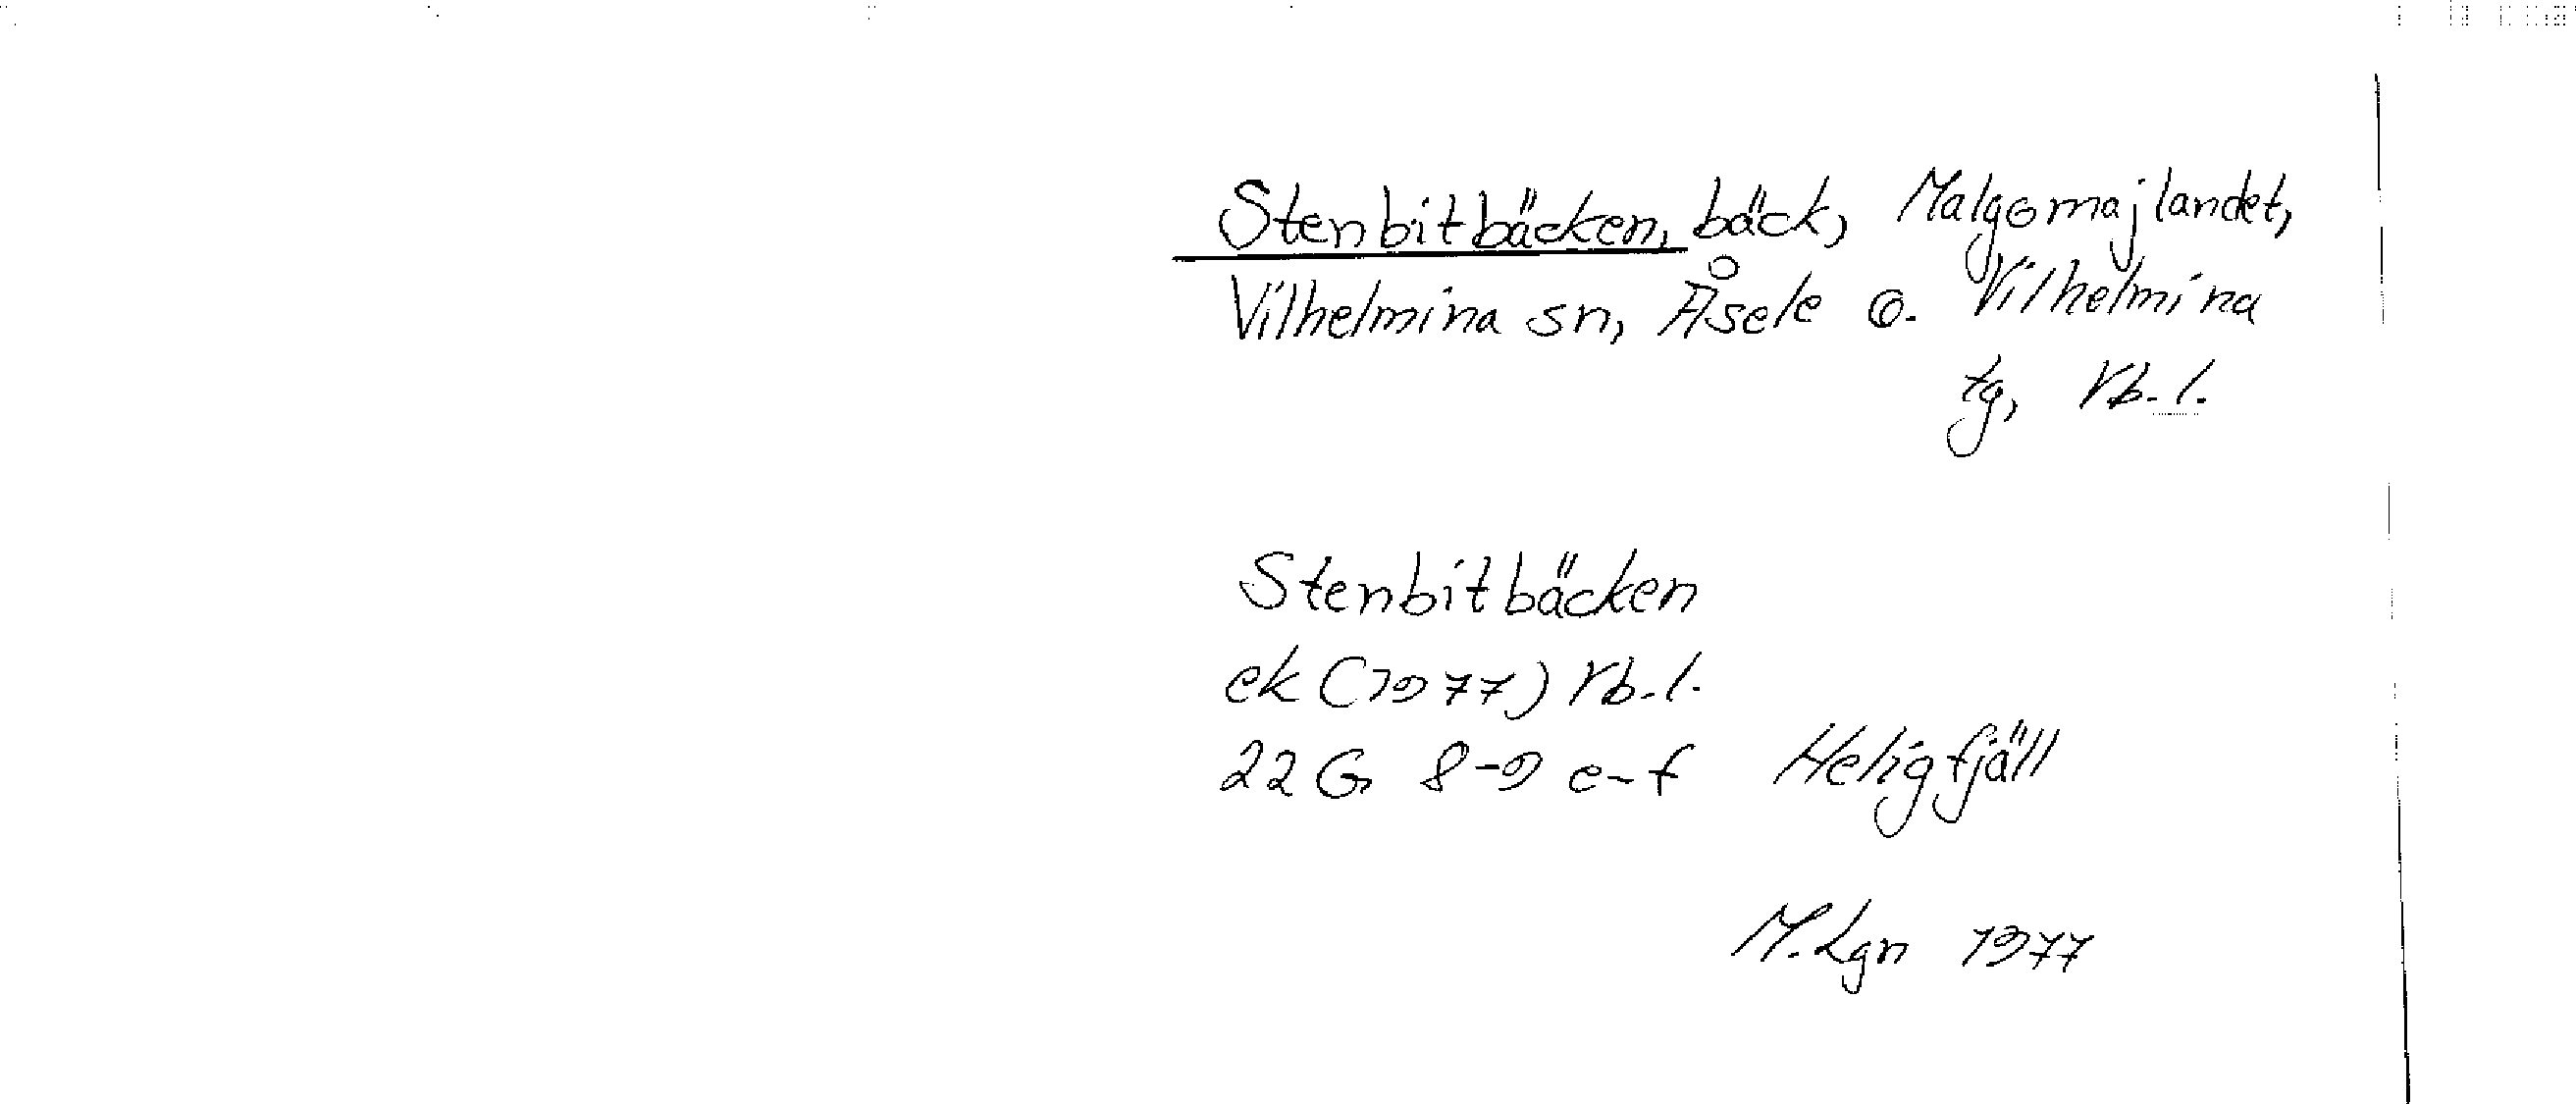 Stenbitbäcken, bäck, Malgomajlandet,
Vilhelmina sn, Åsele o. Vilhelmina
tg, Vb.l.
Stenbitbäcken
ek (1977) Vb.l.
22 G 8-9 e-f Heligfjäll
M.Lgn 1977